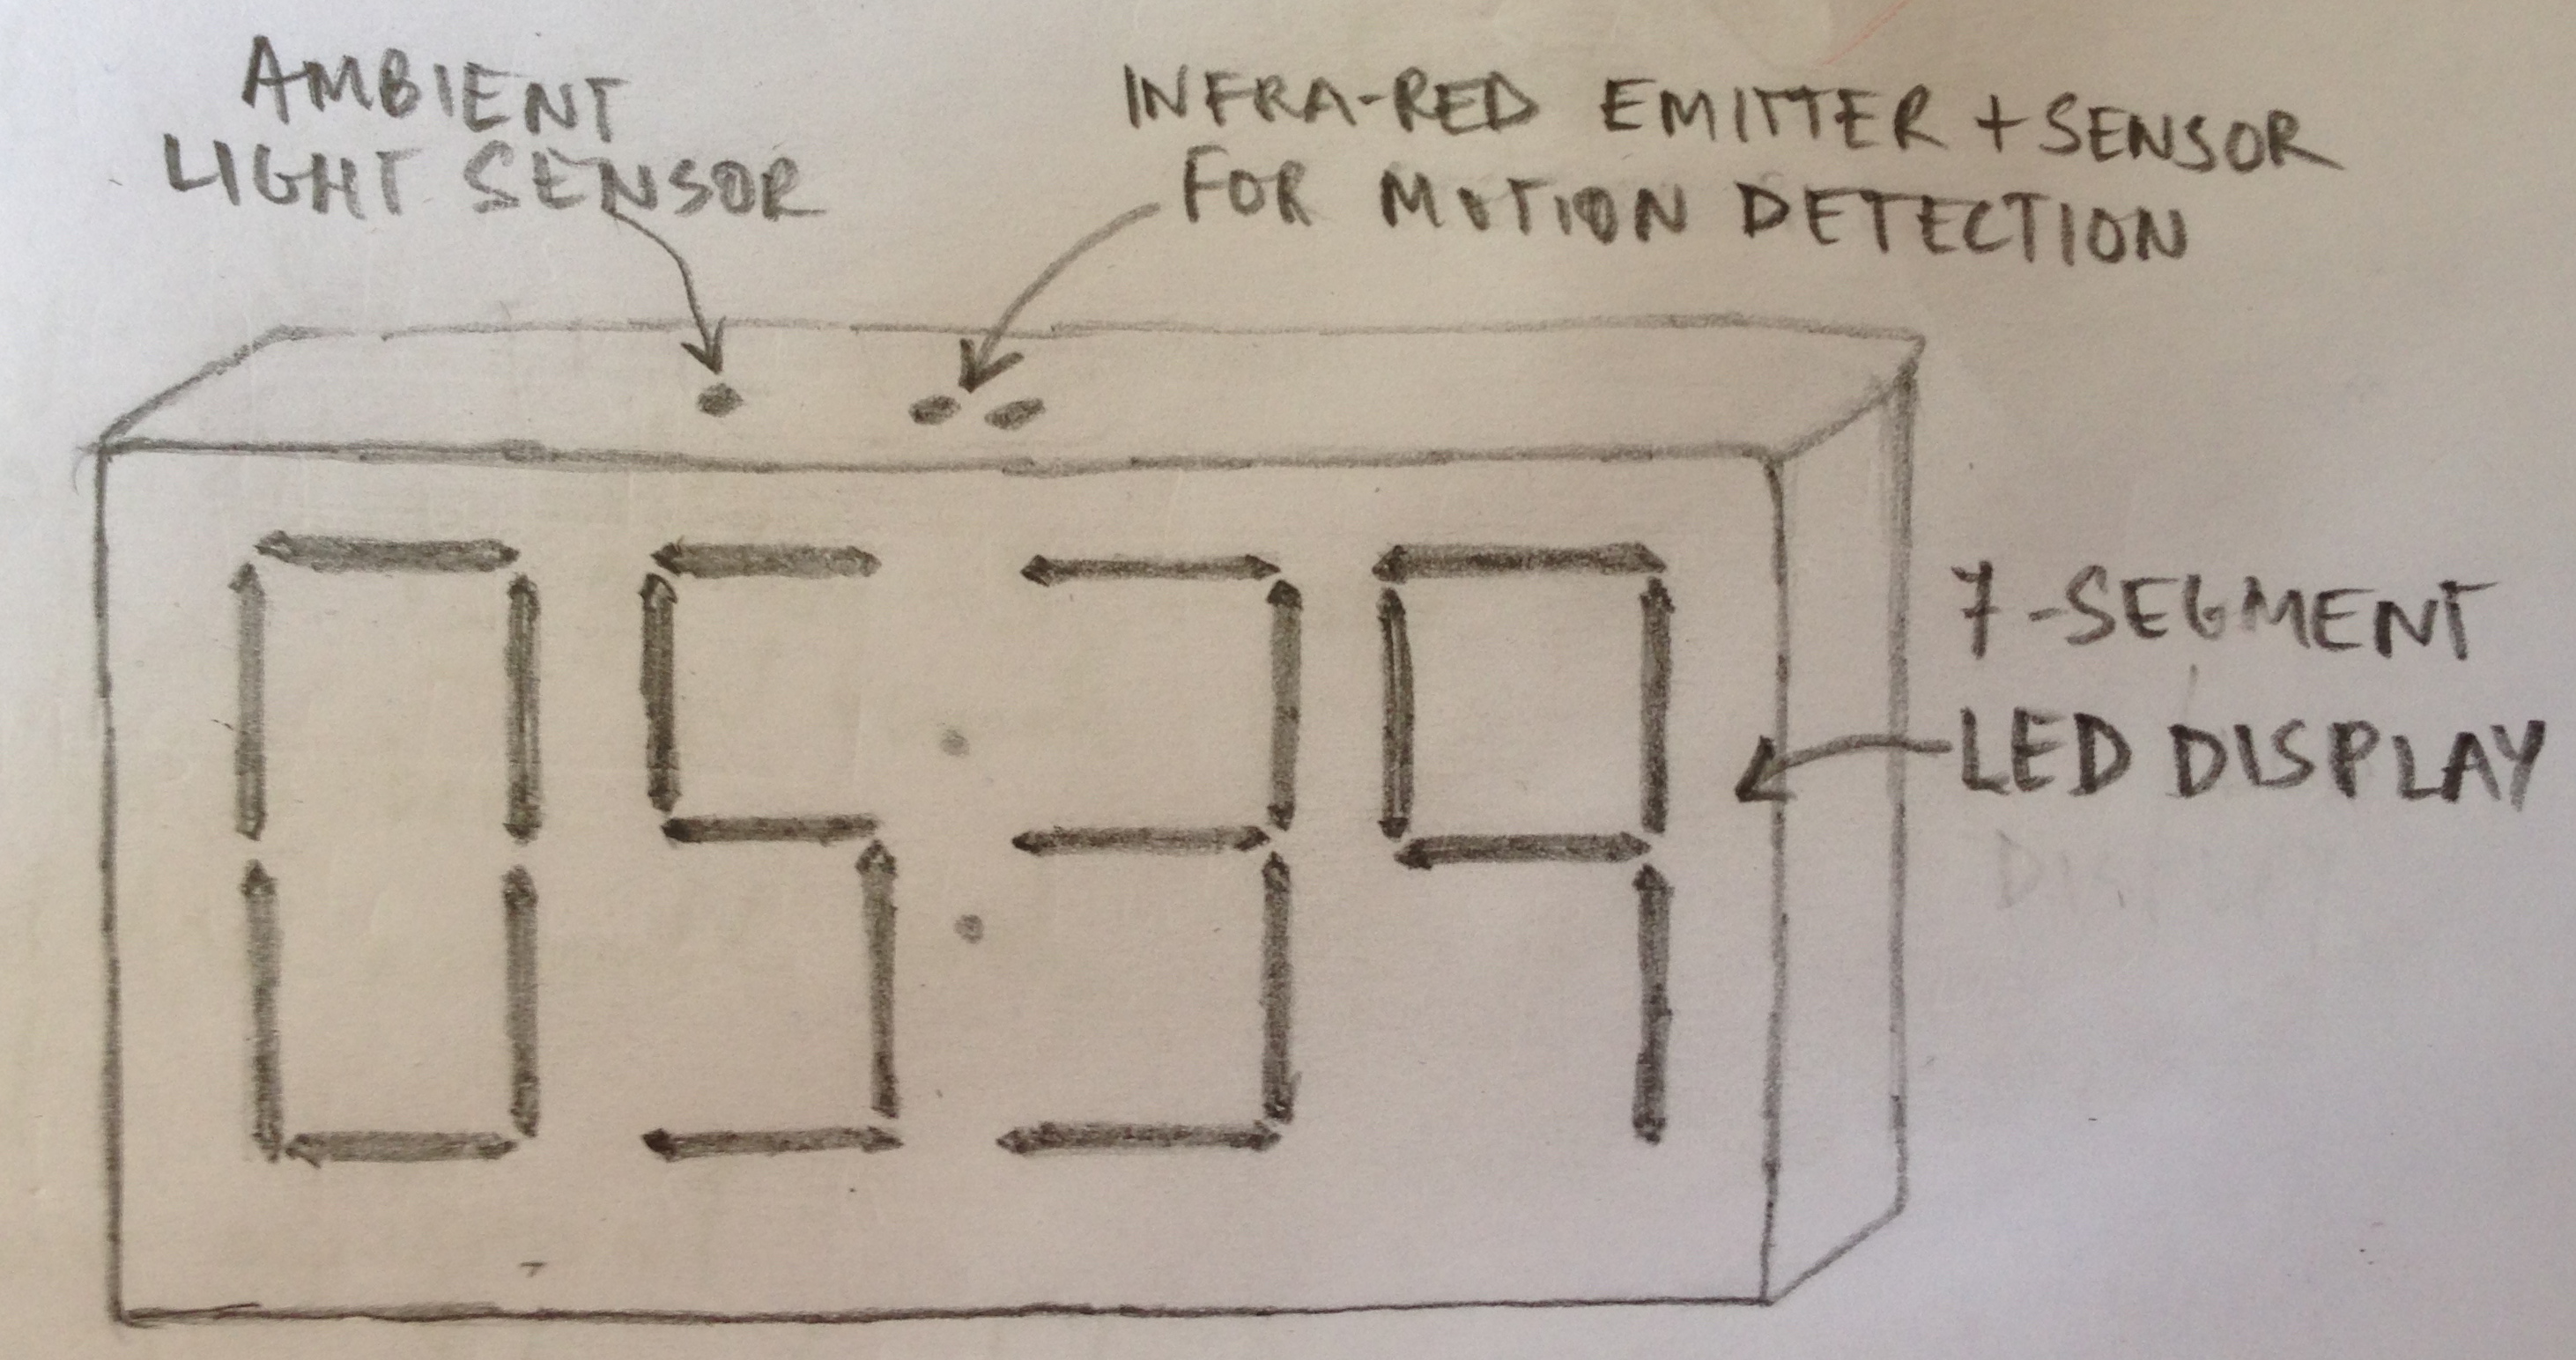 AMBIENT
LIGHT SENSOR
INFRA-RED EMITTER + SENSOR
FOR MOTION DETECTION
05:39
7-SEGMENT
LED DISPLAY